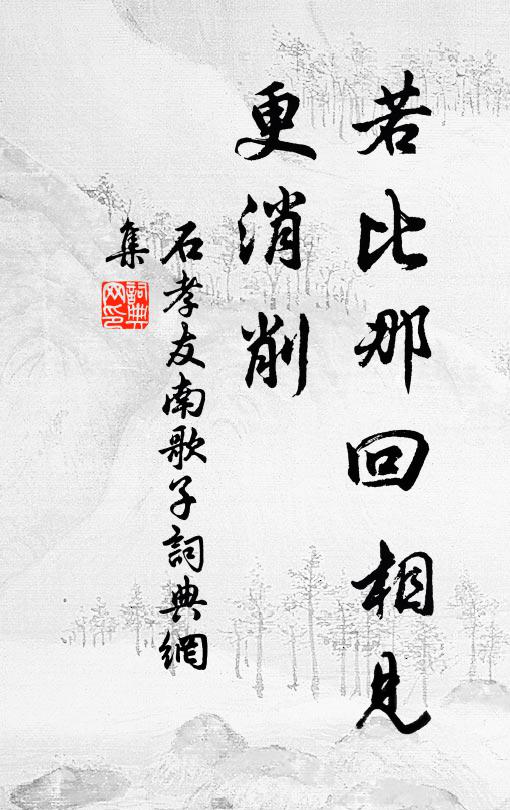 若比那回相見
更消削
石孝友南歌子詞典網
集
詞典
网印